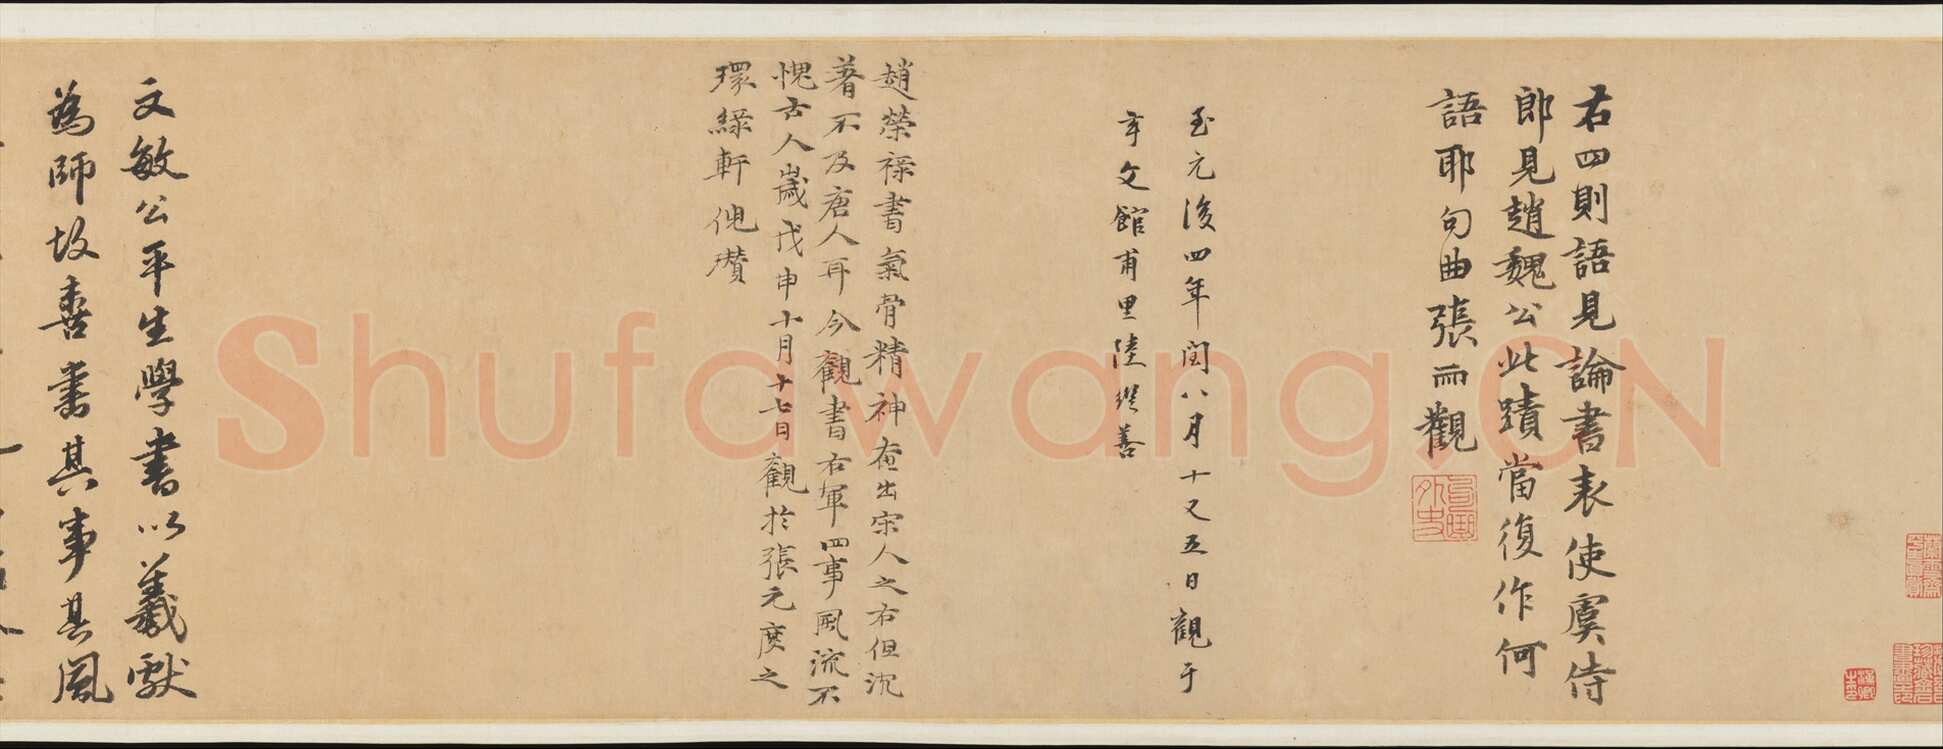 右四則語見論書表使虞侍
郎見趙魏公此蹟當復作何
語耶句曲張雨觀
至元後四年閏八月十又五日觀于
辛文館甫里陸繼善
趙榮祿書氣骨精神夐出宋人之右但沉
著不及唐人耳今觀書右軍四事風流不
愧古人歲戊申十月十七日觀於張元度之
環綠軒倪瓚
文敏公平生學書以羲獻
為師故喜書其事其風
Shufawang.CN